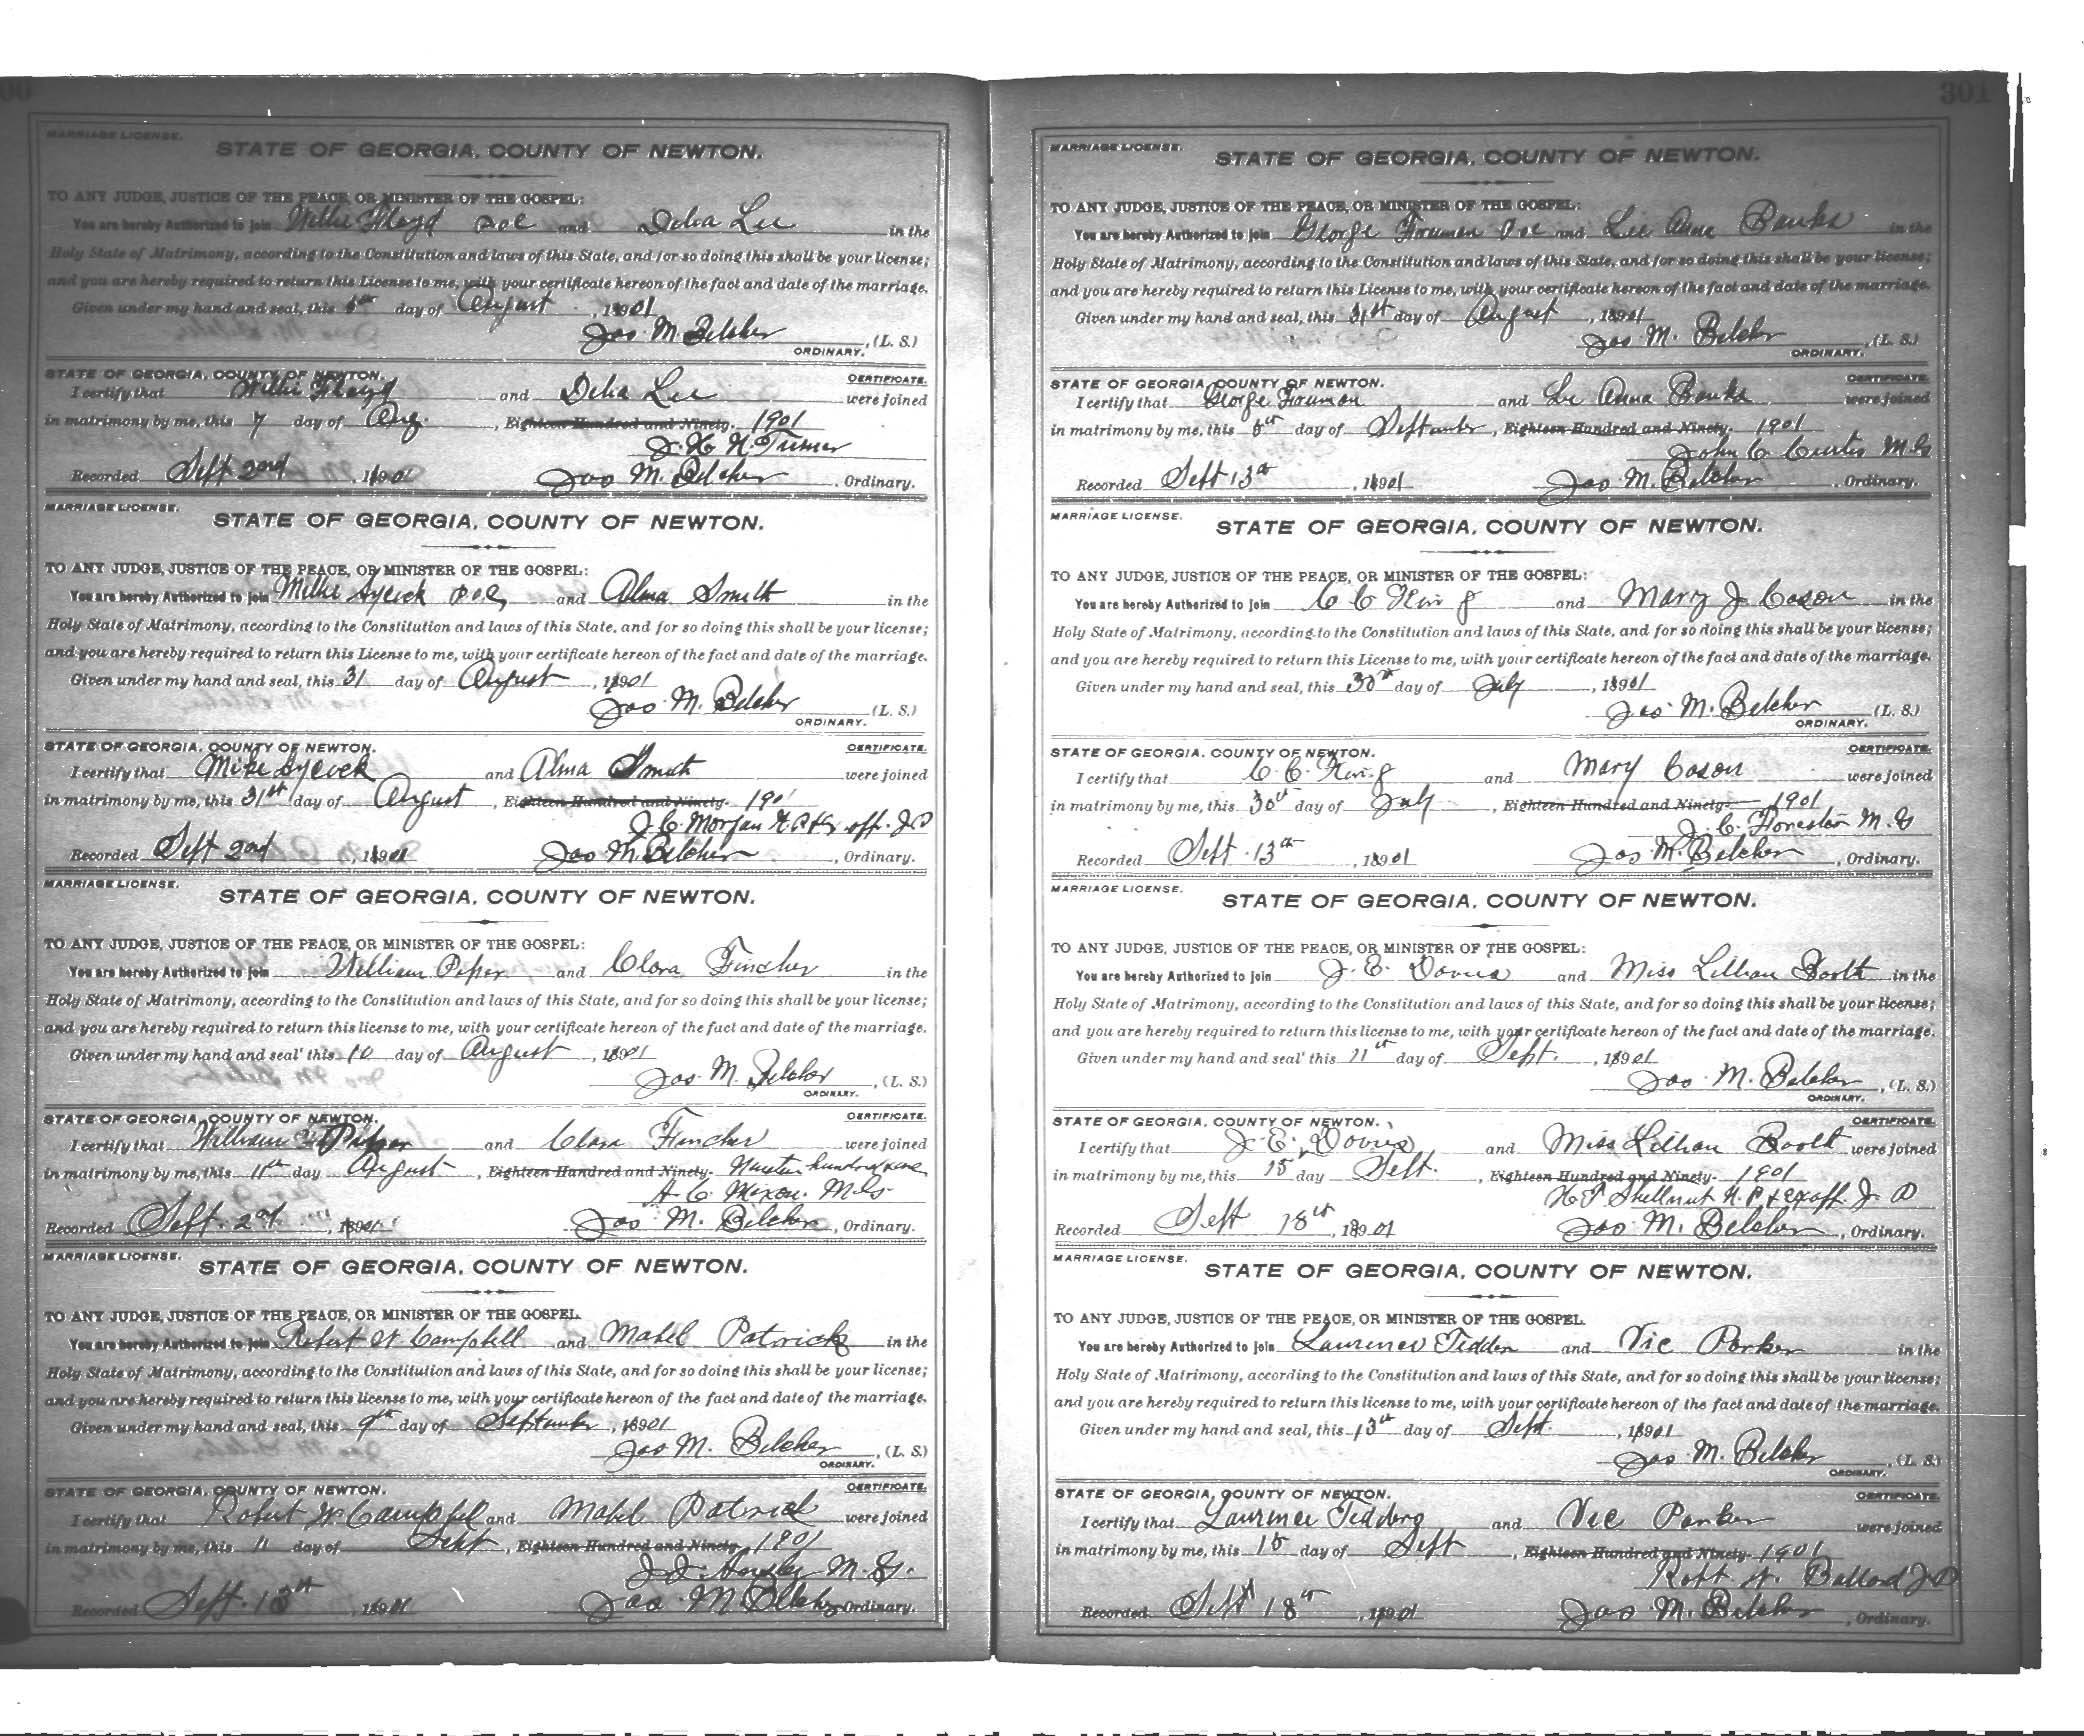 00
MARRIAGE LICENSE.
STATE OF GEORGIA, COUNTY OF NEWTON.
TO ANY JUDGE, JUSTICE OF THE PEACE, OR MINISTER OF THE GOSPEL:
You are hereby Authorized to join Willie Floyd and Delia Lee in the
Holy State of Matrimony, according to the Constitution and laws of this State, and for so doing this shall be your license;
and you are hereby required to return this License to me, with your certificate hereon of the fact and date of the marriage.
Given under my hand and seal, this day of August, 1901
Jas M. Belcher, (L. S.)
ORDINARY.
STATE OF GEORGIA, COUNTY OF NEWTON. CERTIFICATE.
I certify that Willie Floyd and Delia Lee were joined
in matrimony by me, this 7 day of Aug., Eighteen Hundred and Ninety. 1901
Turner
Recorded Sept 2nd, 1901 Jas M. Belcher, Ordinary.
MARRIAGE LICENSE.
STATE OF GEORGIA, COUNTY OF NEWTON.
TO ANY JUDGE, JUSTICE OF THE PEACE, OR MINISTER OF THE GOSPEL:
You are hereby Authorized to join Aycock and Alma Smith in the
Holy State of Matrimony, according to the Constitution and laws of this State, and for so doing this shall be your license;
and you are hereby required to return this License to me, with your certificate hereon of the fact and date of the marriage.
Given under my hand and seal, this 31 day of August, 1901
Jas M. Belcher (L. S.)
ORDINARY.
STATE OF GEORGIA, COUNTY OF NEWTON. CERTIFICATE.
I certify that Mike Aycock and Alma Smith were joined
in matrimony by me, this 31st day of August, Eighteen Hundred and Ninety. 190
J. C. Morgan N. P. & Ex. off. J P
Recorded Sept 2nd, 1901 Jas M. Belcher, Ordinary.
MARRIAGE LICENSE.
STATE OF GEORGIA, COUNTY OF NEWTON.
TO ANY JUDGE, JUSTICE OF THE PEACE, OR MINISTER OF THE GOSPEL:
You are hereby Authorized to join William Piper and Clora Fincher in the
Holy State of Matrimony, according to the Constitution and laws of this State, and for so doing this shall be your license;
and you are hereby required to return this license to me, with your certificate hereon of the fact and date of the marriage.
Given under my hand and seal' this 10 day of August, 1901
Jas. M. Belcher, (L. S.)
ORDINARY.
STATE OF GEORGIA, COUNTY OF NEWTON. CERTIFICATE.
I certify that William Piper and Clora Fincher were joined
in matrimony by me, this 11th day August, Eighteen Hundred and Ninety. Nineteen hundred & one
A. C. Mixon. M. G.
Recorded Sept. 2nd, 1901 Jas M. Belcher, Ordinary.
MARRIAGE LICENSE.
STATE OF GEORGIA, COUNTY OF NEWTON.
TO ANY JUDGE, JUSTICE OF THE PEACE, OR MINISTER OF THE GOSPEL.
You are hereby Authorized to join Robert W Campbell and Mabel Patrick in the
Holy State of Matrimony, according to the Constitution and laws of this State, and for so doing this shall be your license;
and you are hereby required to return this license to me, with your certificate hereon of the fact and date of the marriage.
Given under my hand and seal, this 9th day of September, 1901
Jas M. Belcher, (L. S.)
ORDINARY.
STATE OF GEORGIA, COUNTY OF NEWTON. CERTIFICATE.
I certify that Robert W Campbell and Mabel Patrick were joined
in matrimony by me, this 11 day of Sept, Eighteen Hundred and Ninety, 1901
M. G.
Recorded Sept. 13th, 1901 Jas M Belcher Ordinary.
301
MARRIAGE LICENSE.
STATE OF GEORGIA, COUNTY OF NEWTON.
TO ANY JUDGE, JUSTICE OF THE PEACE, OR MINISTER OF THE GOSPEL:
You are hereby Authorized to join George and Lee Anna Banks in the
Holy State of Matrimony, according to the Constitution and laws of this State, and for so doing this shall be your license;
and you are hereby required to return this License to me, with your certificate hereon of the fact and date of the marriage.
Given under my hand and seal, this 31st day of August, 1901
Jas. M. Belcher, (L. S.)
ORDINARY.
STATE OF GEORGIA, COUNTY OF NEWTON. CERTIFICATE.
I certify that George and Lee Anna Banks were joined
in matrimony by me, this day of September, Eighteen Hundred and Ninety. 1901
John C Curtis M. G
Recorded Sept 13th, 1901 Jas M. Belcher, Ordinary.
MARRIAGE LICENSE.
STATE OF GEORGIA, COUNTY OF NEWTON.
TO ANY JUDGE, JUSTICE OF THE PEACE, OR MINISTER OF THE GOSPEL:
You are hereby Authorized to join C C King and Mary J Cason in the
Holy State of Matrimony, according to the Constitution and laws of this State, and for so doing this shall be your license;
and you are hereby required to return this License to me, with your certificate hereon of the fact and date of the marriage.
Given under my hand and seal, this 30th day of July, 1901
Jas. M. Belcher (L. S.)
ORDINARY.
STATE OF GEORGIA. COUNTY OF NEWTON. CERTIFICATE.
I certify that C. C. King and Mary Cason were joined
in matrimony by me, this 30th day of July, Eighteen Hundred and Ninety. 1901
J. C. Forester M. G
Recorded Sept. 13th, 1901 Jas M. Belcher, Ordinary.
MARRIAGE LICENSE.
STATE OF GEORGIA. COUNTY OF NEWTON.
TO ANY JUDGE, JUSTICE OF THE PEACE, OR MINISTER OF THE GOSPEL:
You are hereby Authorized to join J. E. and Miss Lillian Booth in the
Holy State of Matrimony, according to the Constitution and laws of this State, and for so doing this shall be your license;
and you are hereby required to return this license to me, with your certificate hereon of the fact and date of the marriage.
Given under my hand and seal' this 11th day of Sept., 1901
Jas M. Belcher, (L. S.)
ORDINARY.
STATE OF GEORGIA, COUNTY OF NEWTON. CERTIFICATE.
I certify that J. E. and Miss Lillian Booth were joined
in matrimony by me, this 15 day Sept., Eighteen Hundred and Ninety. 1901
Shellnut N. P & Ex off. J. P
Recorded Sept 18th, 1901 Jas M. Belcher, Ordinary.
MARRIAGE LICENSE.
STATE OF GEORGIA, COUNTY OF NEWTON.
TO ANY JUDGE, JUSTICE OF THE PEACE, OR MINISTER OF THE GOSPEL.
You are hereby Authorized to join Laurence and Vic Parker in the
Holy State of Matrimony, according to the Constitution and laws of this State, and for so doing this shall be your license;
and you are hereby required to return this license to me, with your certificate hereon of the fact and date of the marriage.
Given under my hand and seal, this 13th day of Sept., 1901
Jas M. Belcher, (L. S.)
ORDINARY.
STATE OF GEORGIA, COUNTY OF NEWTON. CERTIFICATE.
I certify that Laurence and Vic Parker were joined
in matrimony by me, this 15 day of Sept, Eighteen Hundred and Ninety. 1901
Robt W. Ballard J P
Recorded Sept 18th, 1901 Jas M. Belcher, Ordinary.